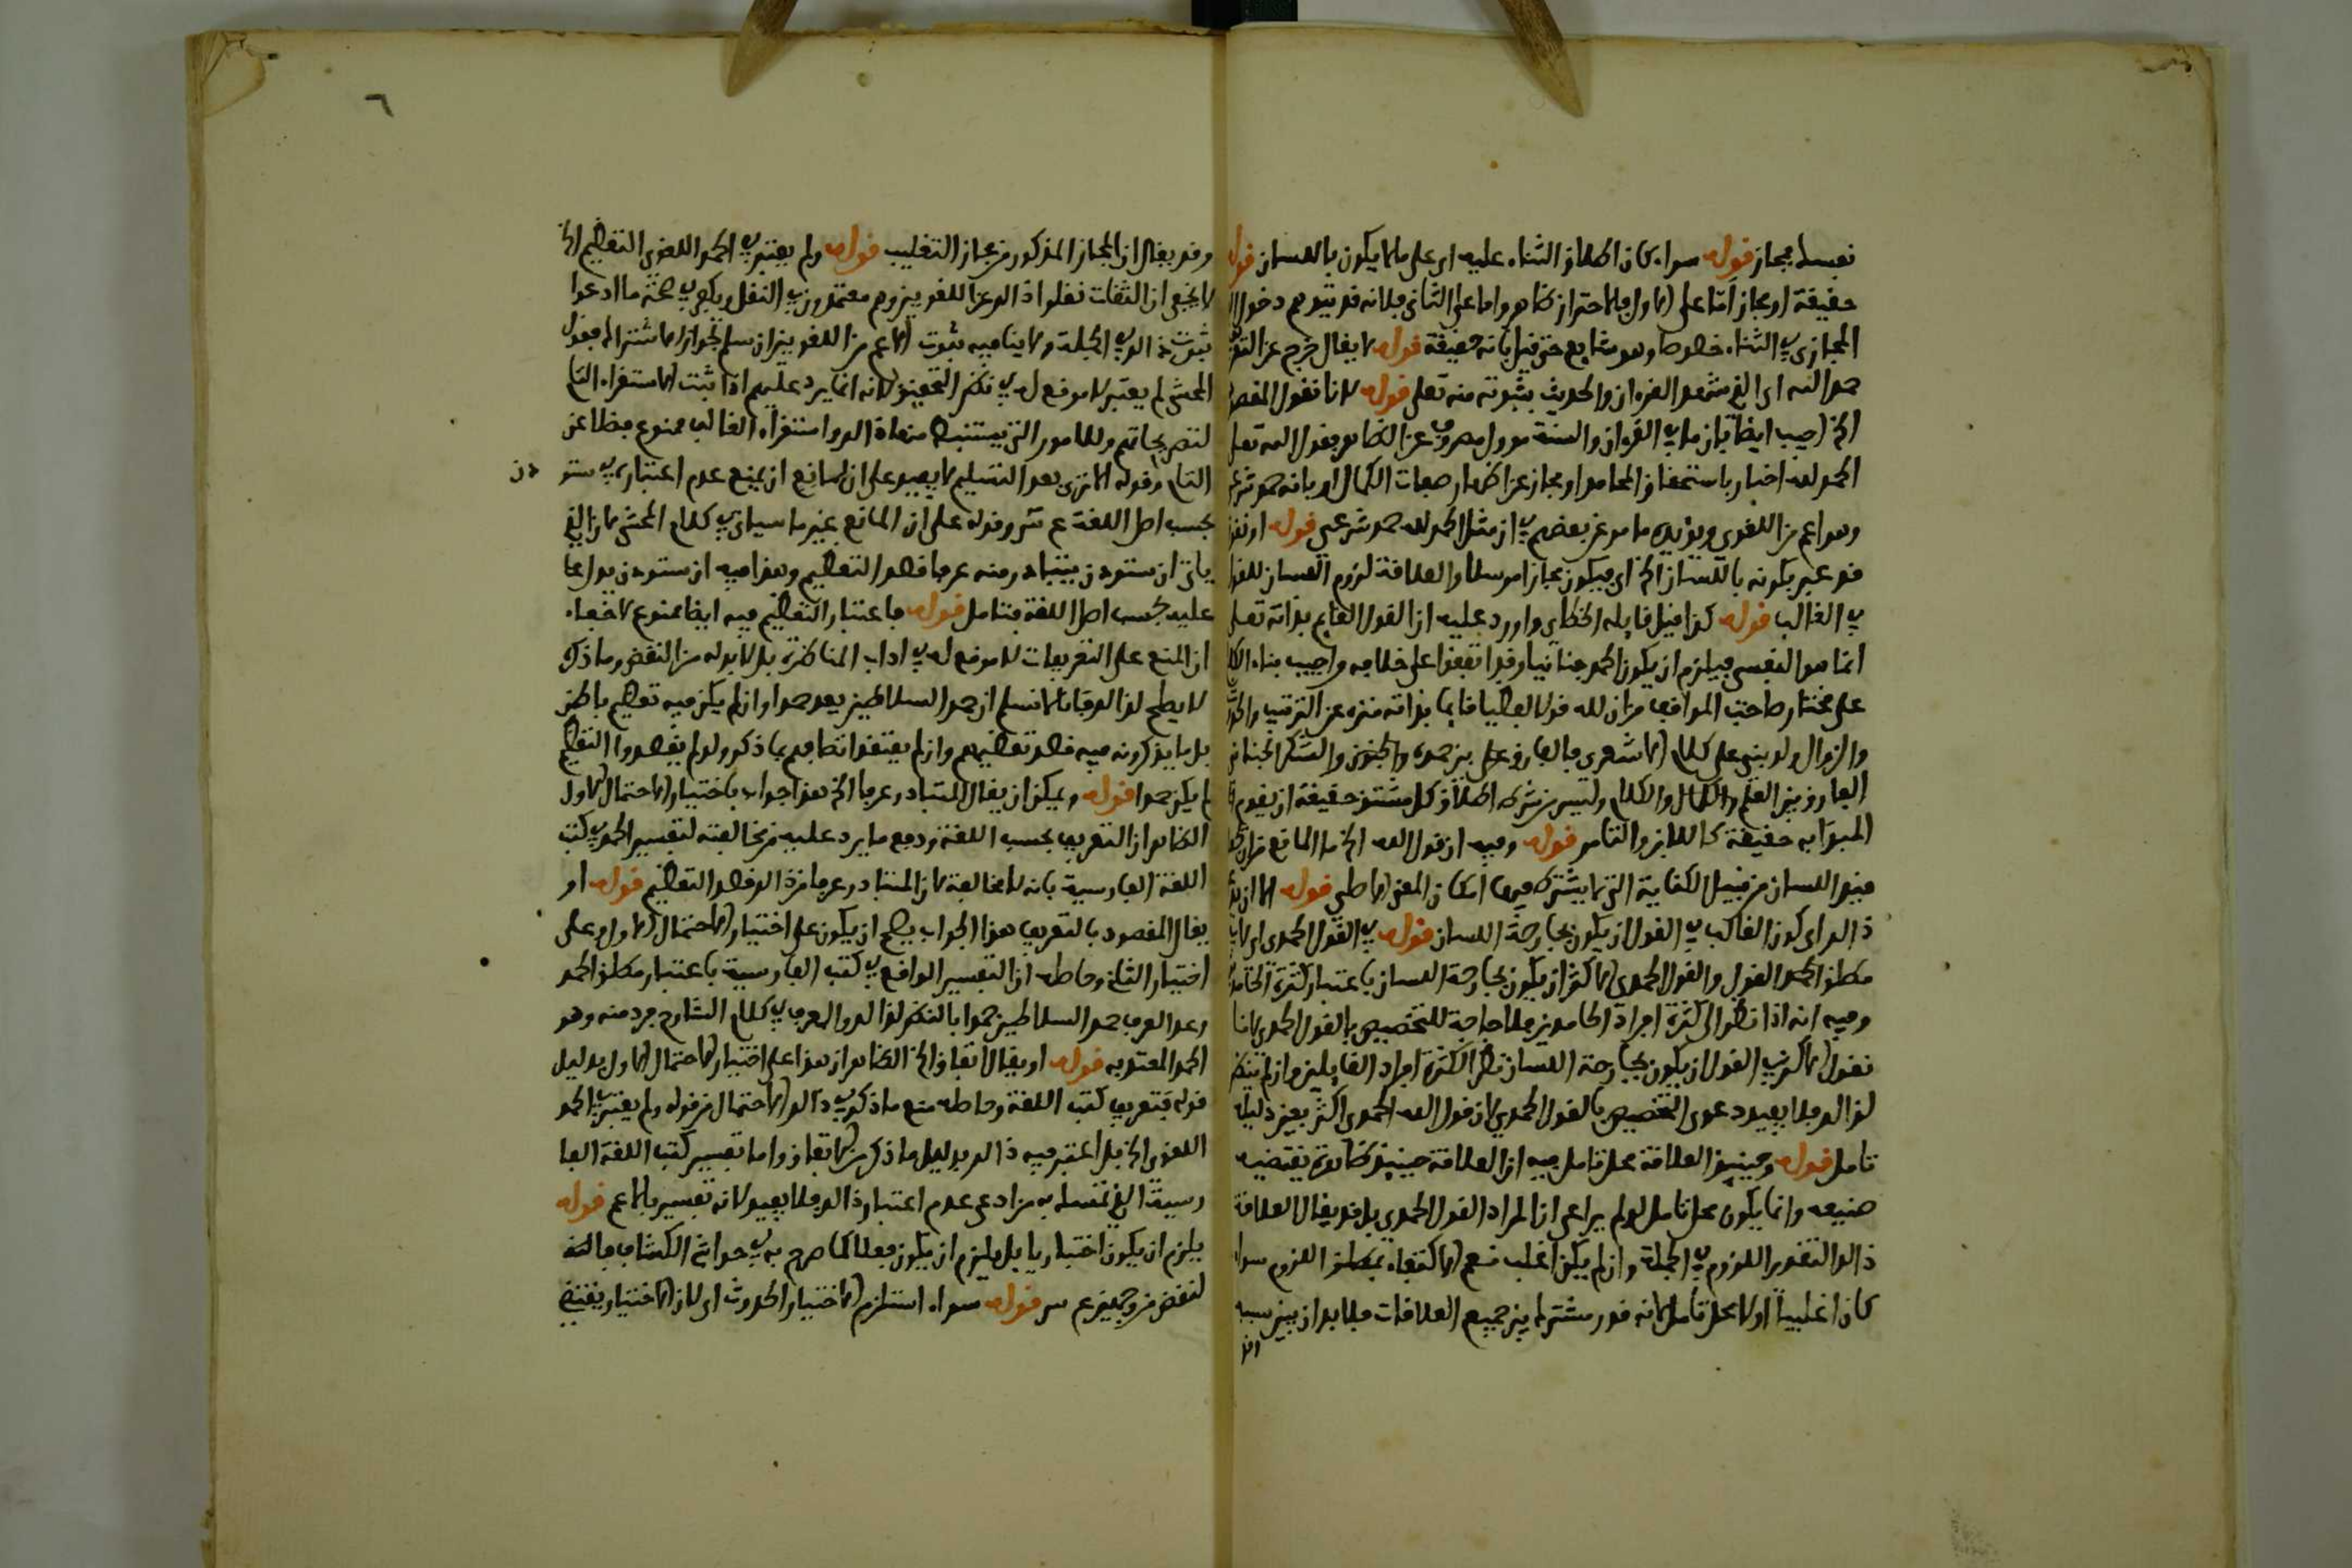 نفسه مجاز قوله سواء كان اطلاق الثناء عليه اي على ما يكون باللسان قوله
حقيقة او مجاز اما على الاول فالاحتراز ظاهر واما على الثاني فلانه قد يتوهم دخول
المجازي في الثناء خصوصا وهو شايع حتى قيل بانه حقيقة قوله لا يقال خرج عن التعر
حمد الله اي الذي شهد القرءان والحديث بثبوته منه تعلى قوله لانا نقول المقصود
الخ اجيب ايضا بان ما في القرءان والسنة مؤول مصروف عن الظاهر بقول الله تعلى
الحمد لله اخبار باستحقاق المحامد او مجاز عن اظهار صفات الكمال او بانه حمد شرعي
وهو اعم من اللغوي ويؤيده ما مر عن بعضهم في ان مثل الحمد لله حمد شرعي قوله او نقول
قد عبر بكونه باللسان الخ اي فيكون مجازا مرسلا والعلاقة لزوم اللسان للقول
في الغالب قوله كذا قيل قايله الخطاي واورد عليه ان القول القايم بذاته تعلى
انما هو النفسي فيلزم ان يكون الحمد جنانيا وقد اتفقوا على خلافه واجيب بناء الكلام
على مختار صاحب المواقف من ان لله قولا لفظيا قايما بذاته منزه عن الترتيب والحدوث
والزوال ولو بني على كلام الاشعري فالفارق على بين حمده والجنون والشكر الجناني
الفارق بين العلم والكمال والكلام وليس من شرط اطلاق كل مشتق حقيقة ان يقوم
المبدا به حقيقة كاللابن والتامر قوله وفيه ان قول الله الخ ما المانع من ان يجعل
قيد اللسان من قبيل الكناية التي لا يشترط فيها امكان المعنى الاصلي قوله الا ان يقال
ذالك اي كون الغالب في القول ان يكون بجارحة اللسان قوله في القول الحمدي اي لا في
مطلق الحمد القول والقول الحمدي الاكثر ان يكون بجارحة اللسان باعتبار كثرة الحامدين
وفيه انه اذا نظر الى كثرة افراد الحامدين فلا حاجة للتخصيص بالقول الحمدي لانا
نقول الاكثر في القول ان يكون بجارحة اللسان نظرا لكثرة افراد القايلين وان لم ينظر
لذالك فلا يفيد دعوى التخصيص بالقول الحمدي لان قول الله الحمدي اكثر بغير دليله
تامل قوله وحينيذ العلاقة محل تامل فيه ان العلاقة حينيذ ظاهرة يقتضيه
صنيعه وانما يكون محل تامل لو لم يراعى ان المراد القول الحمدي بل قد يقال العلاقة
ذالك التقدير اللزوم في الجملة وان لم يكن اغلب نعم الاكتفاء بمطلق اللزوم سواء
كان اغلبيا اولا محل تامل لانه قدر مشترك بين جميع العلاقات فلا بد ان يبين سببه
وقد
٦
وقد يقال ان المجاز المذكور من مجاز التغليب قوله ولم يعتبر في الحمد اللغوي التعظيم الخ
لا يخفى ان الثقات نقلوا ذالك عن اللغويين وهم معتمدون في النقل ويكفي في صحة ما ادعوا
ثبوت ذالك في الجملة ولا ينافيه ثبوت الاعم من اللغويين ان سلم لجواز الاشتراك فقول
المحشي لم يعتبر لا موقع له في نظر التحقيق لانه انما يرد عليهم اذا ثبت الاستقراء التام
لتصريحاتهم وللامور التي يستنبطها منها ذالك واستقراء الغالب ممنوع فضلا عن
التام وقوله الا ترى بعد التسليم لا يفيد على ان لمانع ان يمنع عدم اعتباره في ستو
دن
بحسب اصل اللغة ع ش وقوله على ان المانع يمنع ما سياتي في كلام المحشي لان الذي
ياتي ان ستودن يتبادر منه عرفا قصد التعظيم وهذا فيه ان ستودن يدل
عليه بحسب اصل اللغة فتامل قوله فاعتبار التعظيم فيه ايضا ممنوع لا خفاء
ان المنع على التعريفات لا موقع له في اداب المناظرة بل لا بد له من النقض وما ذكره
لا يصلح لذالك فانا لا نسلم ان حمد السلاطين يعد حمدا وان لم يكن فيه تعظيم باطن
بل ما يذكرونه فيه قصد تعظيمهم وان لم يعتقدوا اتصافهم بما ذكر ولو لم يقصدوا التعظيم
لم يكن حمدا قوله ويمكن ان يقال المتبادر عرفا الخ هذا جواب باختيار الاحتمال الاول
الظاهر ان التعريف بحسب اللغة ودفع ما يرد عليه من مخالفته لتفسير الحمد في كتب
اللغة الفارسية بانه لا مخالفة لان المتبادر عرفا من ذالك قصد التعظيم قوله او
يقال المقصود بالتعريف هذا الجواب يصلح ان يكون على اختيار الاحتمال الاول وعلى
اختيار الثاني وحاصله ان التفسير الواقع في كتب الفارسية باعتبار مطلق الحمد
وعد العرف حمد السلاطين حمدا بالنظر لذالك والمعرف في كلام الشارح فرد منه وهو
الحمد المعتد به قوله او يقال الاتفاق الخ الظاهر ان هذا على اختيار الاحتمال الاول بدليل
قوله فتعريف كتب اللغة وحاصله منع ما ذكر في ذالك الاحتمال من قوله ولم يعتبر في الحمد
اللغوي الخ بل اعتبر فيه ذالك بدليل ما ذكر من الاتفاق واما تفسير كتب اللغة الفا
رسية الذي تمسك به من ادعى عدم اعتبار ذالك فلا يفيد لانه تفسير بالاعم قوله
يلزم ان يكون اختياريا بل يلزم ان يكون فعلا كما صرح به في حواشي الكشاف فالتعر
لنقض من وجهين ع س قوله سواء استلزم الاختيار الحدوث اي لان الاختيار يقتضي